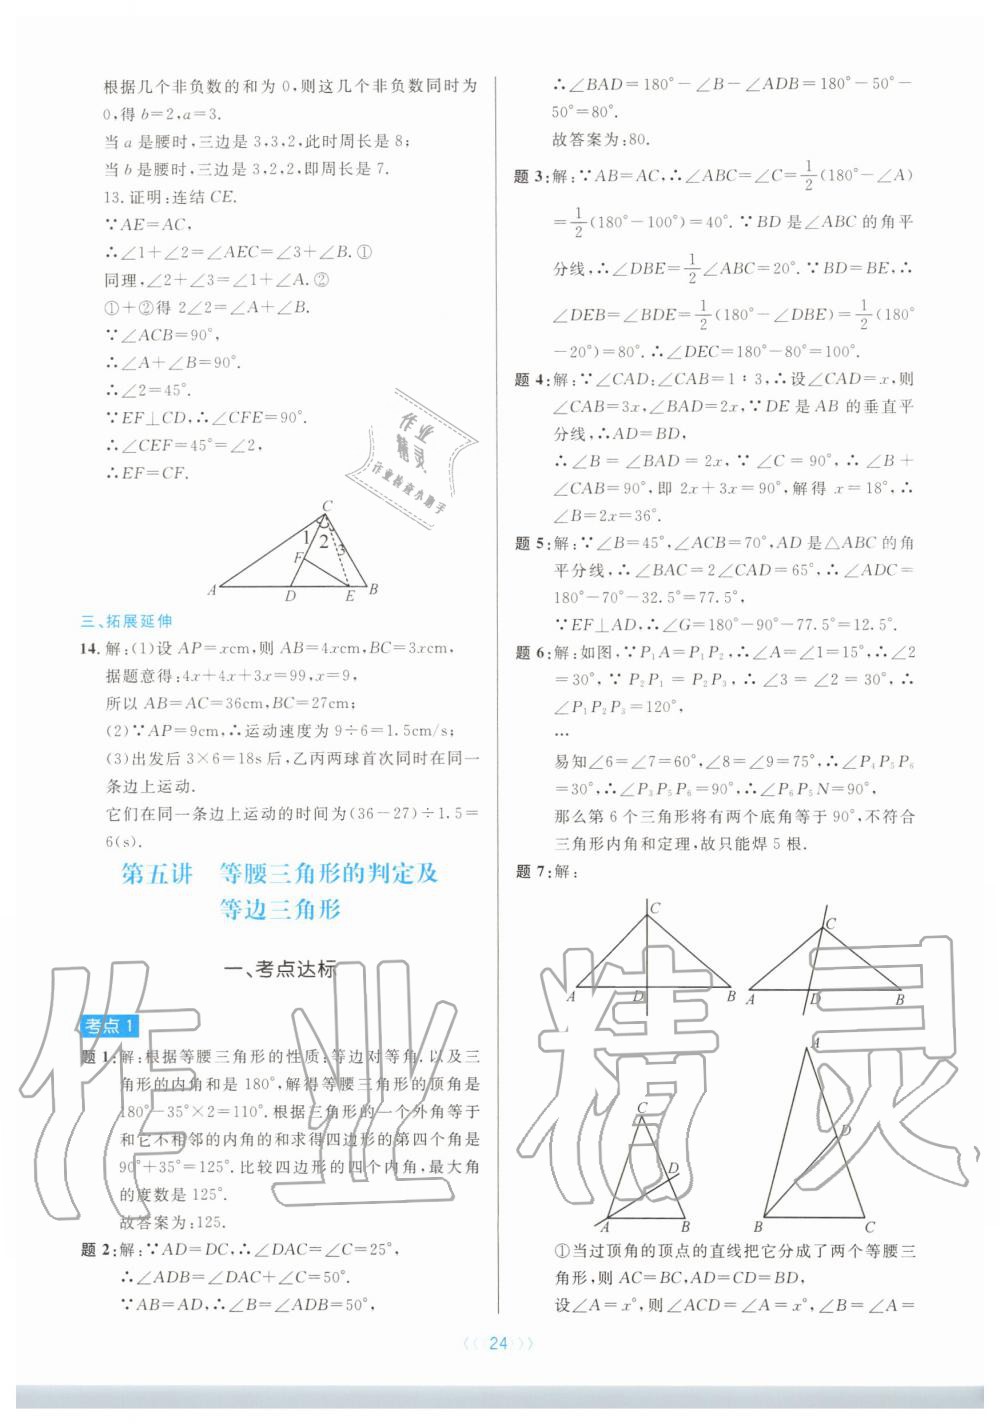 根据几个非负数的和为 0,则这几个非负数同时为
0,得 b=2,a=3.
当 a 是腰时,三边是 3,3,2,此时周长是 8;
当 b 是腰时,三边是 3,2,2,即周长是 7.
13.证明:连结 CE.
∵AE=AC,
∴∠1+∠2=∠AEC=∠3+∠B.①
同理,∠2+∠3=∠1+∠A.②
①+②得 2∠2=∠A+∠B.
∵∠ACB=90°,
∴∠A+∠B=90°.
∴∠2=45°.
∵EF⊥CD,∴∠CFE=90°.
∴∠CEF=45°=∠2,
∴EF=CF.
C
1 2 3
F
A D E B
三、拓展延伸
14.解:(1)设 AP=xcm,则 AB=4xcm,BC=3xcm,
据题意得:4x+4x+3x=99,x=9,
所以 AB=AC=36cm,BC=27cm;
(2)∵AP=9cm,∴运动速度为 9÷6=1.5cm/s;
(3)出发后 3×6=18s后,乙丙两球首次同时在同一
条边上运动.
它们在同一条边上运动的时间为(36-27)÷1.5=
6(s).
第五讲 等腰三角形的判定及
等边三角形
一、考点达标
考点 1
题 1:解:根据等腰三角形的性质:等边对等角.以及三
角形的内角和是 180°,解得等腰三角形的顶角是
180°-35°×2=110°.根据三角形的一个外角等于
和它不相邻的内角的和求得四边形的第四个角是
90°+35°=125°.比较四边形的四个内角,最大角
的度数是 125°.
故答案为:125.
题 2:解:∵AD=DC,∴∠DAC=∠C=25°,
∴∠ADB=∠DAC+∠C=50°.
∵AB=AD,∴∠B=∠ADB=50°,
∴∠BAD=180°-∠B-∠ADB=180°-50°-
50°=80°.
故答案为:80.
题 3:解:∵AB=AC,∴∠ABC=∠C=1/2(180°-∠A)
=1/2(180°-100°)=40°.∵BD是∠ABC 的角平
分线,∴∠DBE=1/2∠ABC=20°.∵BD=BE,∴
∠DEB=∠BDE=1/2(180°-∠DBE)=1/2(180°
-20°)=80°.∴∠DEC=180°-80°=100°.
题 4:解:∵∠CAD:∠CAB=1:3,∴设∠CAD=x,则
∠CAB=3x,∠BAD=2x,∵DE 是 AB 的垂直平
分线,∴AD=BD,
∴∠B=∠BAD=2x,∵∠C=90°,∴∠B+
∠CAB=90°,即 2x+3x=90°,解得 x=18°,∴
∠B=2x=36°.
题 5:解:∵∠B=45°,∠ACB=70°,AD是△ABC 的角
平分线,∴∠BAC=2∠CAD=65°,∴∠ADC=
180°-70°-32.5°=77.5°,
∵EF⊥AD,∴∠G=180°-90°-77.5°=12.5°.
题 6:解:如图,∵P₁A=P₁P₂,∴∠A=∠1=15°,∴∠2
=30°,∵P₂P₁=P₂P₃,∴∠3=∠2=30°,∴
∠P₁P₂P₃=120°,
…
易知∠6=∠7=60°,∠8=∠9=75°,∴∠P₄P₅P₆
=30°,∴∠P₃P₅P₆=90°,∴∠P₆P₅N=90°,
那么第 6 个三角形将有两个底角等于 90°,不符合
三角形内角和定理,故只能焊 5 根.
题 7:解:
C
A D B
C
A D B
C
D
A B
A
D
B C
①当过顶角的顶点的直线把它分成了两个等腰三
角形,则 AC=BC,AD=CD=BD,
设∠A=x°,则∠ACD=∠A=x°,∠B=∠A=
24
作业精灵
作业
精灵
作业检查小助手